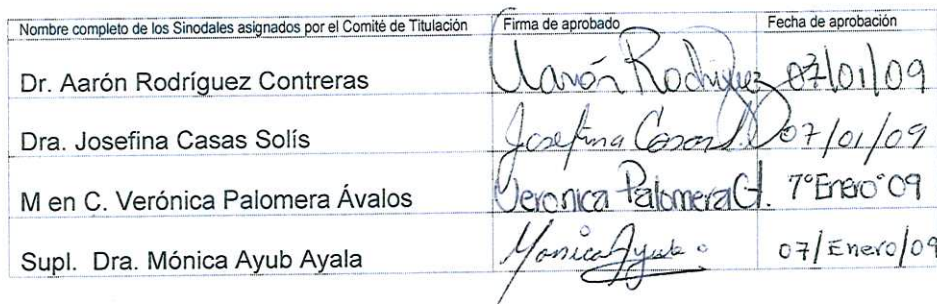 Nombre completo de los Sinodales asignados por el Comité de Titulación Firma de aprobado Fecha de aprobación
Dr. Aarón Rodríguez Contreras Aarón Rodríguez 07/01/09
Dra. Josefina Casas Solís Josefina Casas S. 07/01/09
M en C. Verónica Palomera Ávalos Veronica Palomera 7°Enero°09
Supl. Dra. Mónica Ayub Ayala Monica Ayub 07/Enero/09